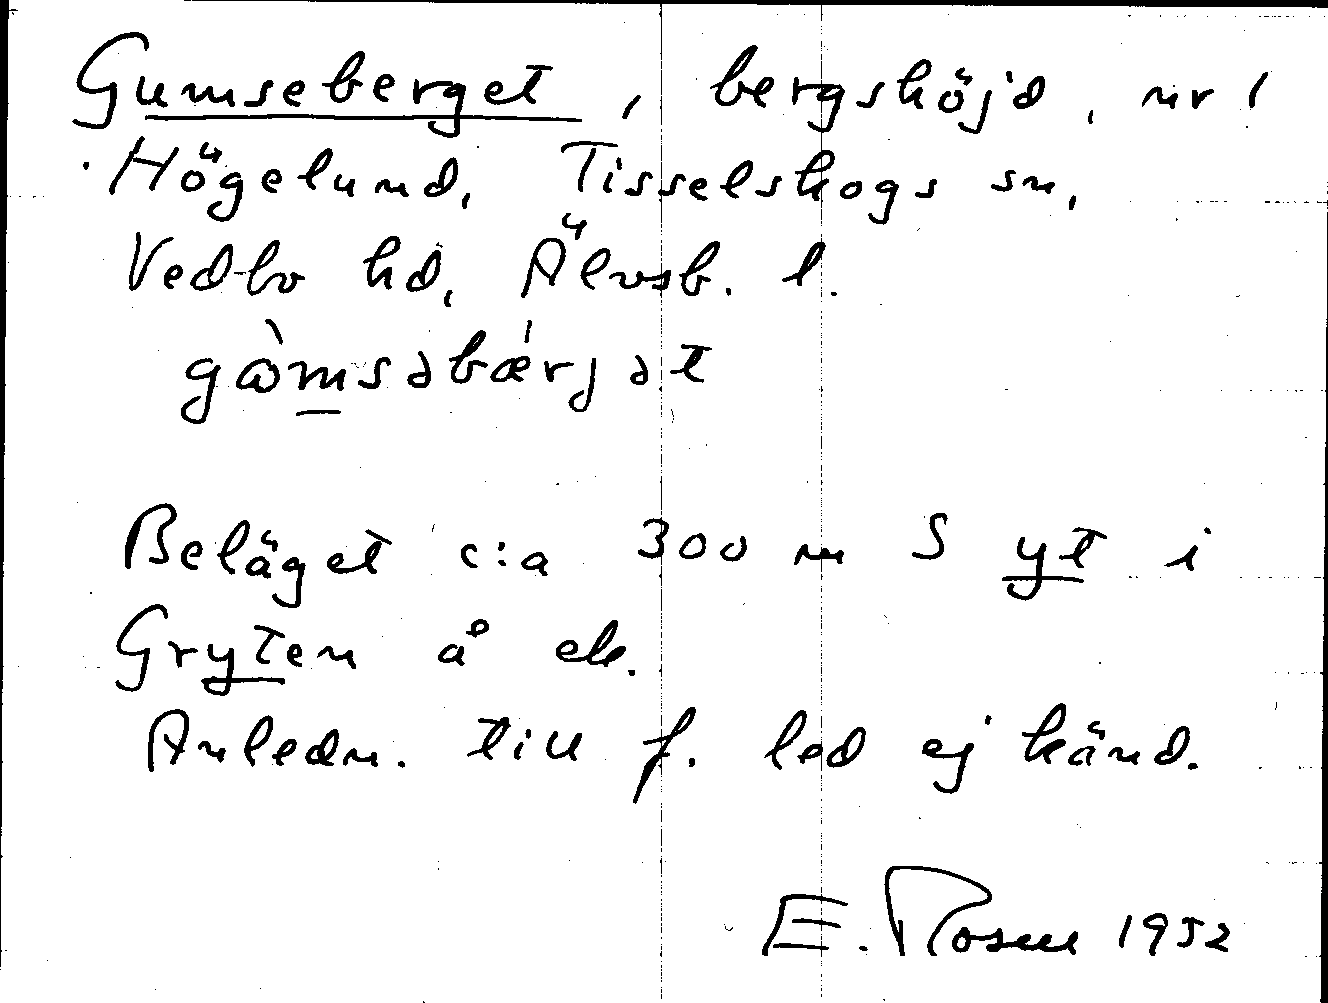 Gumseberget, bergshöjd, nr 1
Högelund, Tisselskogs sn,
Vedbo hd, Älvsb. l.
gὼmsəbǽrjət
Beläget c:a 300 m S yt i
Gryten å ek.
Anledn. till f. led ej känd.
E. Rosen 1952